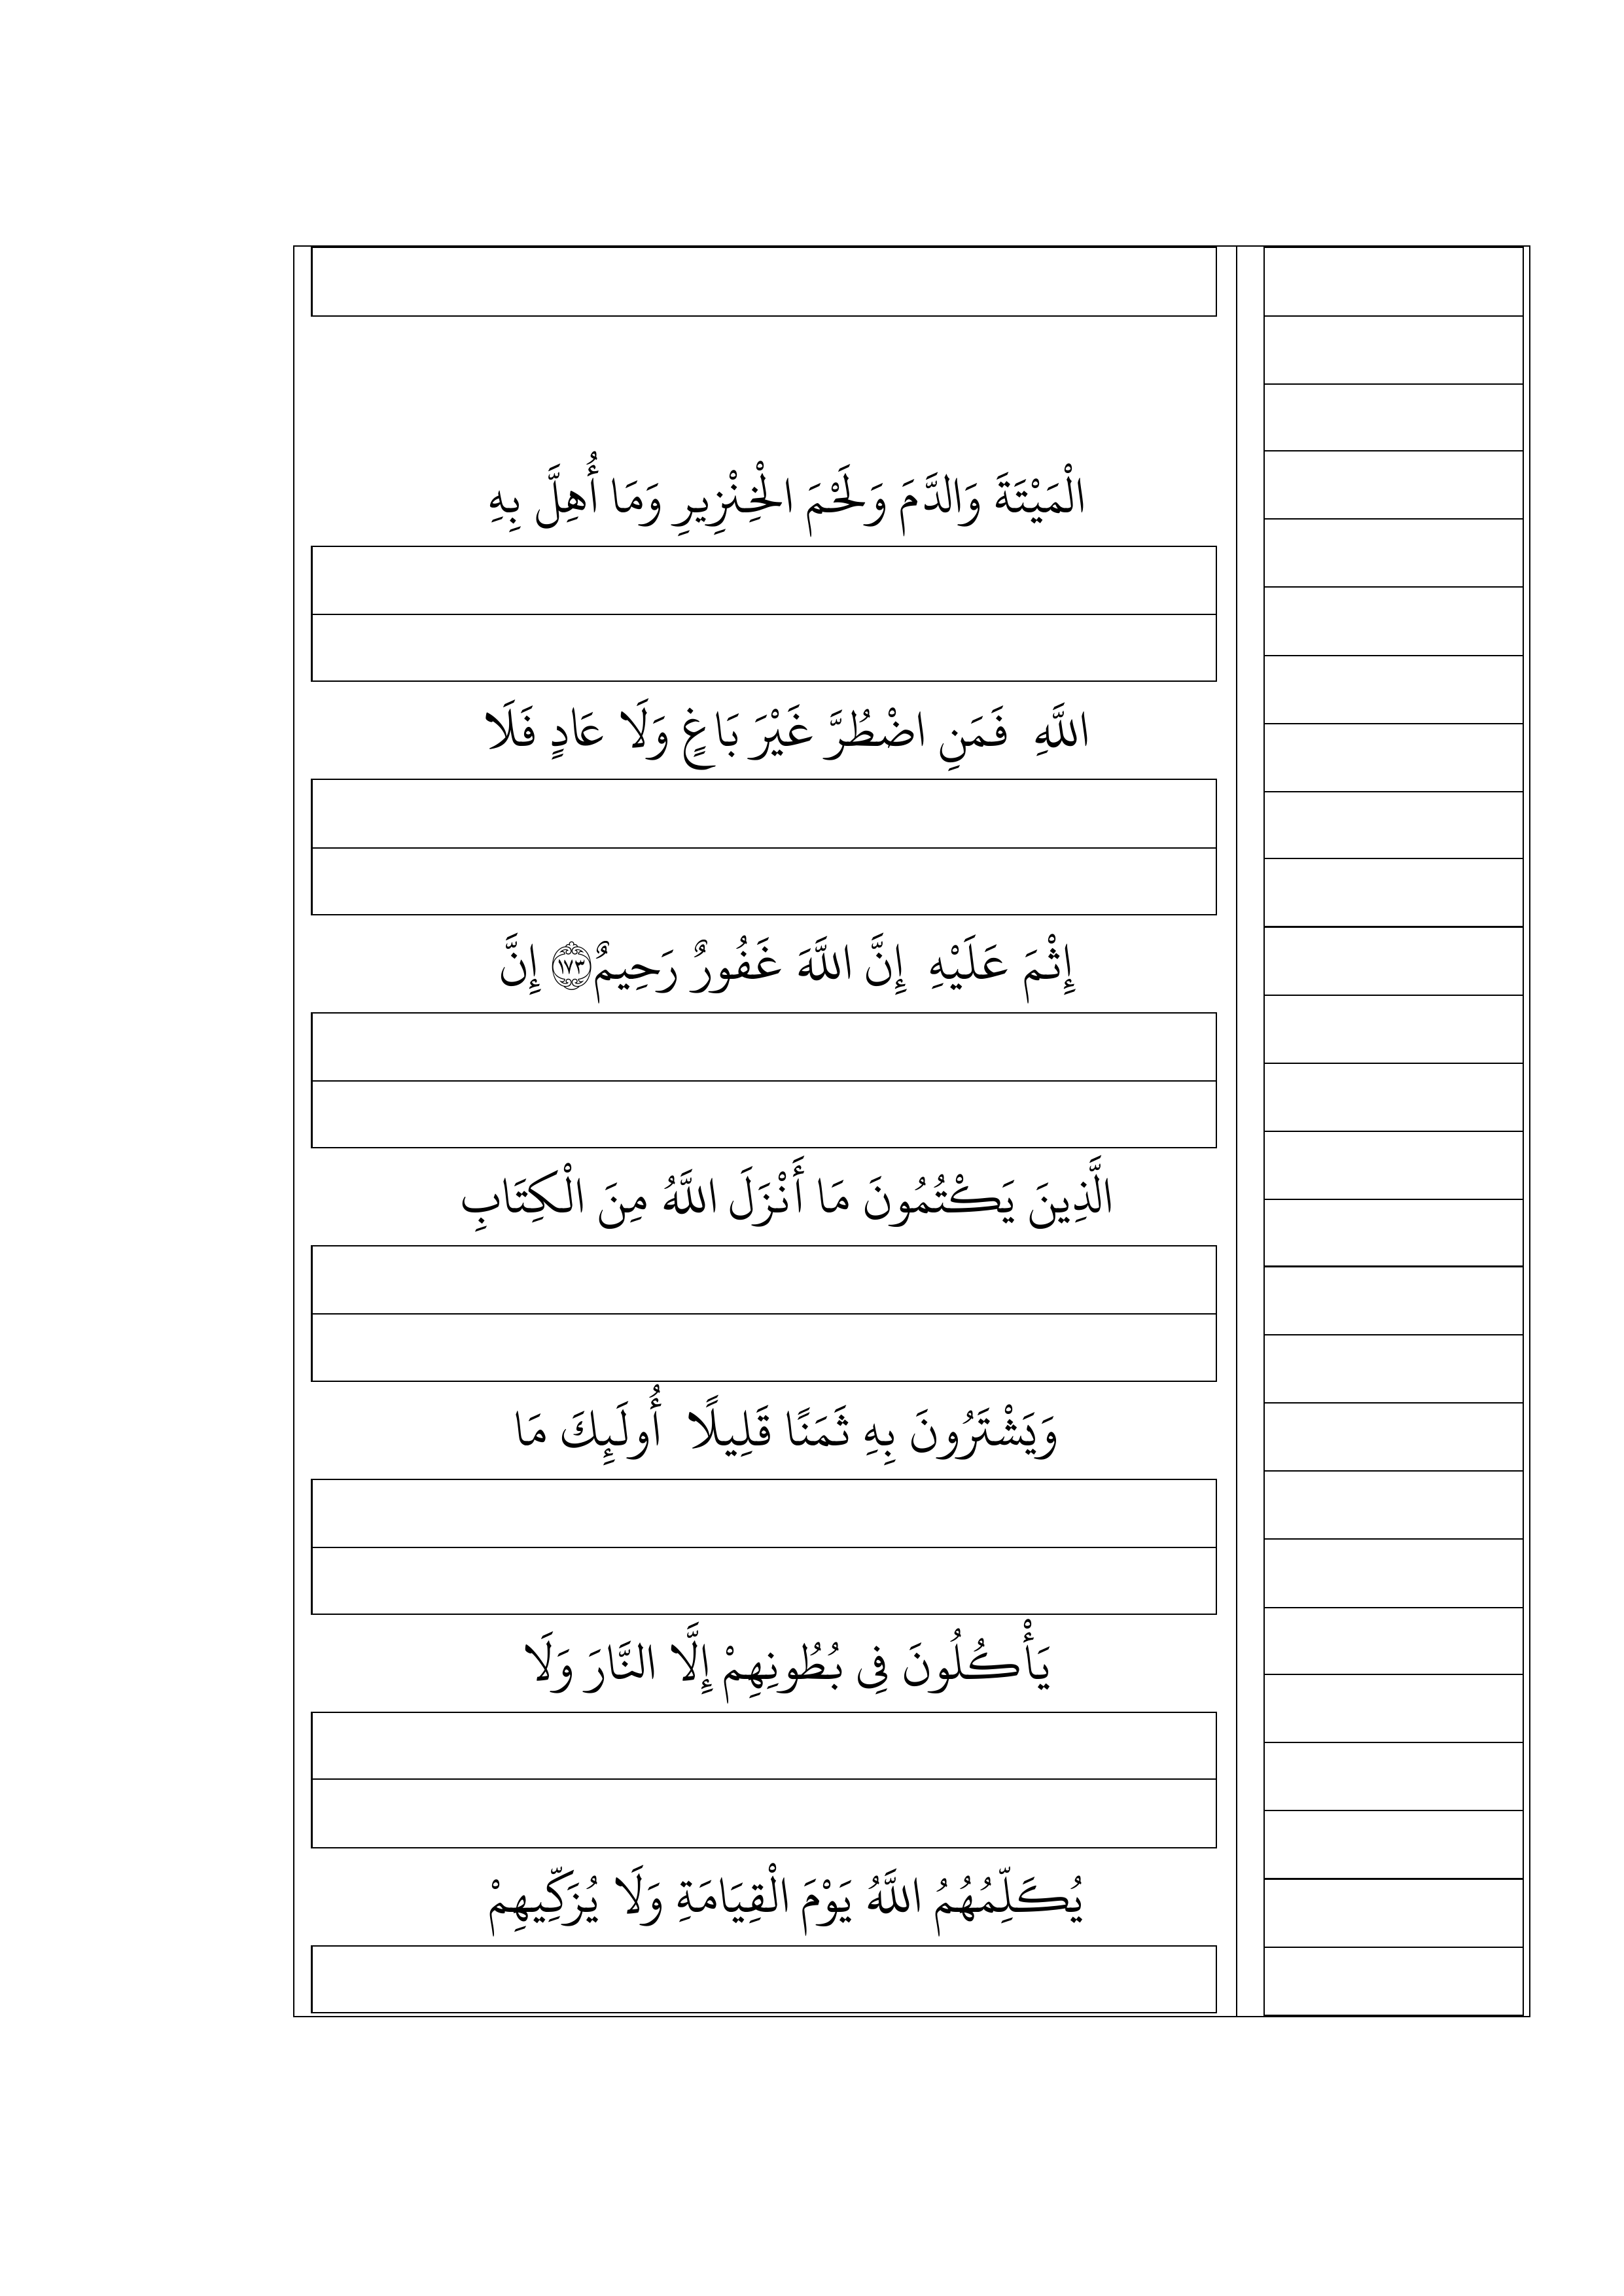 الْمَيْتَةَ وَالدَّمَ وَلَحْمَ الْخِنْزِيرِ وَمَا أُهِلَّ بِهِ
اللَّهِ فَمَنِ اضْطُرَّ غَيْرَ بَاغٍ وَلَا عَادٍ فَلَا
إِثْمَ عَلَيْهِ إِنَّ اللَّهَ غَفُورٌ رَحِيمٌ ١٧٣ إِنَّ
الَّذِينَ يَكْتُمُونَ مَا أَنْزَلَ اللَّهُ مِنَ الْكِتَابِ
وَيَشْتَرُونَ بِهِ ثَمَنًا قَلِيلًا أُولَئِكَ مَا
يَأْكُلُونَ فِي بُطُونِهِمْ إِلَّا النَّارَ وَلَا
يُكَلِّمُهُمُ اللَّهُ يَوْمَ الْقِيَامَةِ وَلَا يُزَكِّيهِمْ